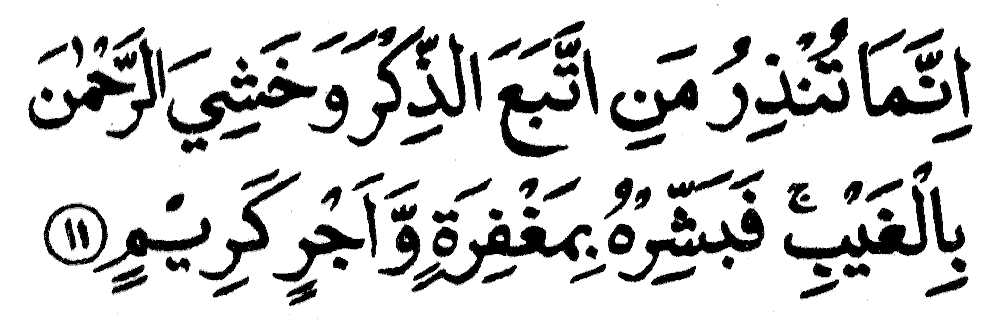 اِنَّمَا تُنْذِرُ مَنِ اتَّبَعَ الذِّكْرَ وَخَشِيَ الرَّحْمٰنَ
بِالْغَيْبِ ۚ فَبَشِّرْهُ بِمَغْفِرَةٍ وَّاَجْرٍ كَرِيْمٍ ۝١١